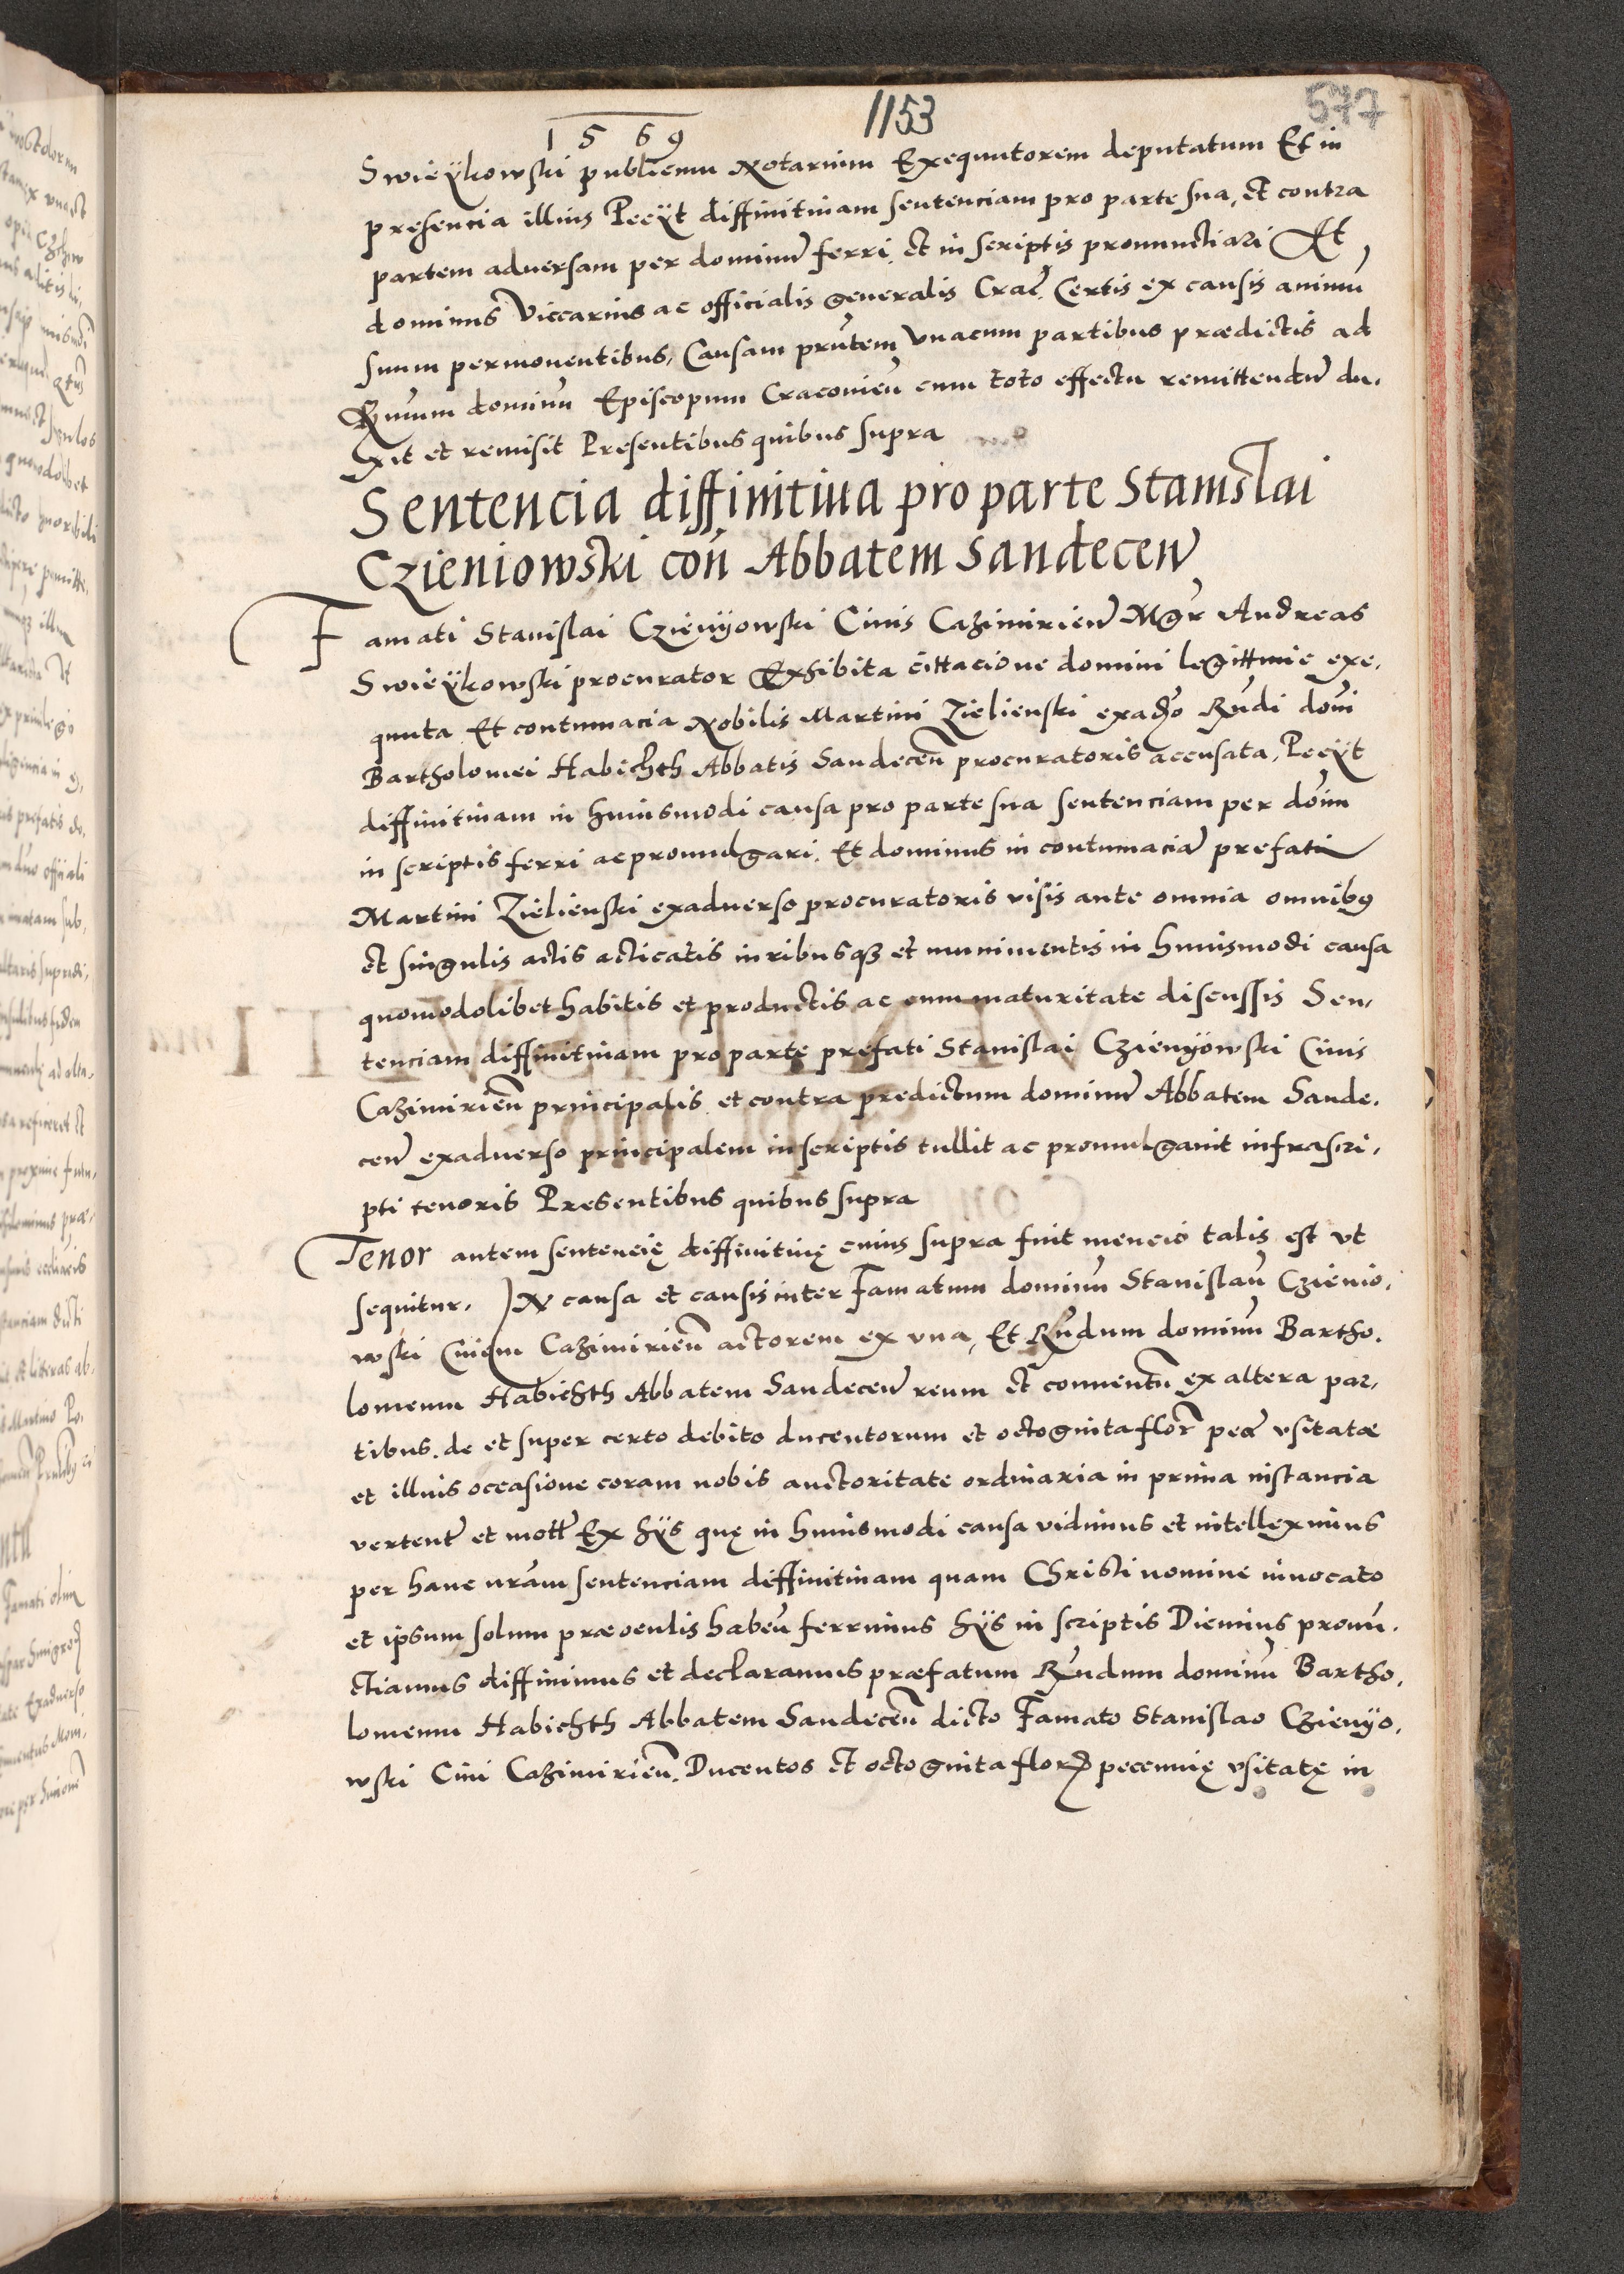 1153
577
1569
Swieÿkowski publicum Notarium Exequutorem deputatum Et in
presencia illius Peeÿt diffinitiuam sentenciam pro parte sua, et contra
partem aduersam per dominu͂ ferri, et in scriptis pronunctiari Et
dominus Viccarius ac officialis generalis Crac͂. Certis ex causis animu͂
suum permouentibus, Causam pru͂tem vnacum partibus prædictis ad
Rm͂um dominu͂ Episcopum Cracouien͂ cum toto effectu remittendu͂ du,
xit et remisit Presentibus quibus supra
Sentencia diffinitiua pro parte Stanislai
Czieniowski con͂ Abbatem Sandecen͂
Famati Stanislai Czienÿowski Ciuis Cazimirien͂ Mgr͂ Andreas
Swieÿkowski procurator Exhibita cittacione domini legittmie exe,
quuta Et contumacia Nobilis Martini Zielienski exad͂so Rn͂di dom͂i
Bartholomei Habichth Abbatis Sandecen͂ procuratoris accusata, Peeÿt
diffinitiuam in huiusmodi causa pro parte sua sentenciam per dom͂m
in scriptis ferri ac promulgari. Et dominus in contumacia͂ prefati
Martini Zielienski exaduerso procuratoris visis ante omnia omnibꝯ
et singulis actis acticatis iuribusqꝫ et munimentis in huiusmodi causa
quomodolibet habitis et productis ac cum maturitate discussis Sen,
tenciam diffinitiuam pro parte prefati Stanislai Czienÿowski Ciuis
Cazimirien͂ principalis et contra predictum dominu͂ Abbatem Sande,
cen͂ exaduerso principalem in scriptis tullit ac promulgauit infrascri,
pti tenoris Presentibus quibus supra
Tenor autem sentencię diffinitiuę cuius supra fuit mencio talis est vt
sequitur, IN causa et causis inter Famatum dominu͂ Stanislau͂ Czienio,
wski Ciuem Cazimirien͂ actorem ex vna, Et Rn͂dum dominu͂ Bartho,
lomeum Habichth Abbatem Sandecen͂ reum et conuentu͂ ex altera par,
tibus. de et super certo debito ducentorum et octoginta flor͂ pec͂ vsitatæ
et illius occasione coram nobis auctoritate ordinaria in prima instancia
vertent͂ et mott͂ Ex hÿs quę in huiusmodi causa vidimus et intelleximus
per hanc nr͂am sentenciam diffinitiuam quam Christi nomine inuocato
et ipsum solum præ oculis haben͂ ferrimus hÿs in scriptis Dicimus pronu͂,
ctiamus diffinimus et declaramus præfatum Rn͂dum dominu͂ Bartho,
lomeum Habichth Abbatem Sandecen͂ dicto Famato Stanislao Czienÿo,
wski Ciui Cazimirien͂. Ducentos et octoginta florꝝ pecunię vsitatę in